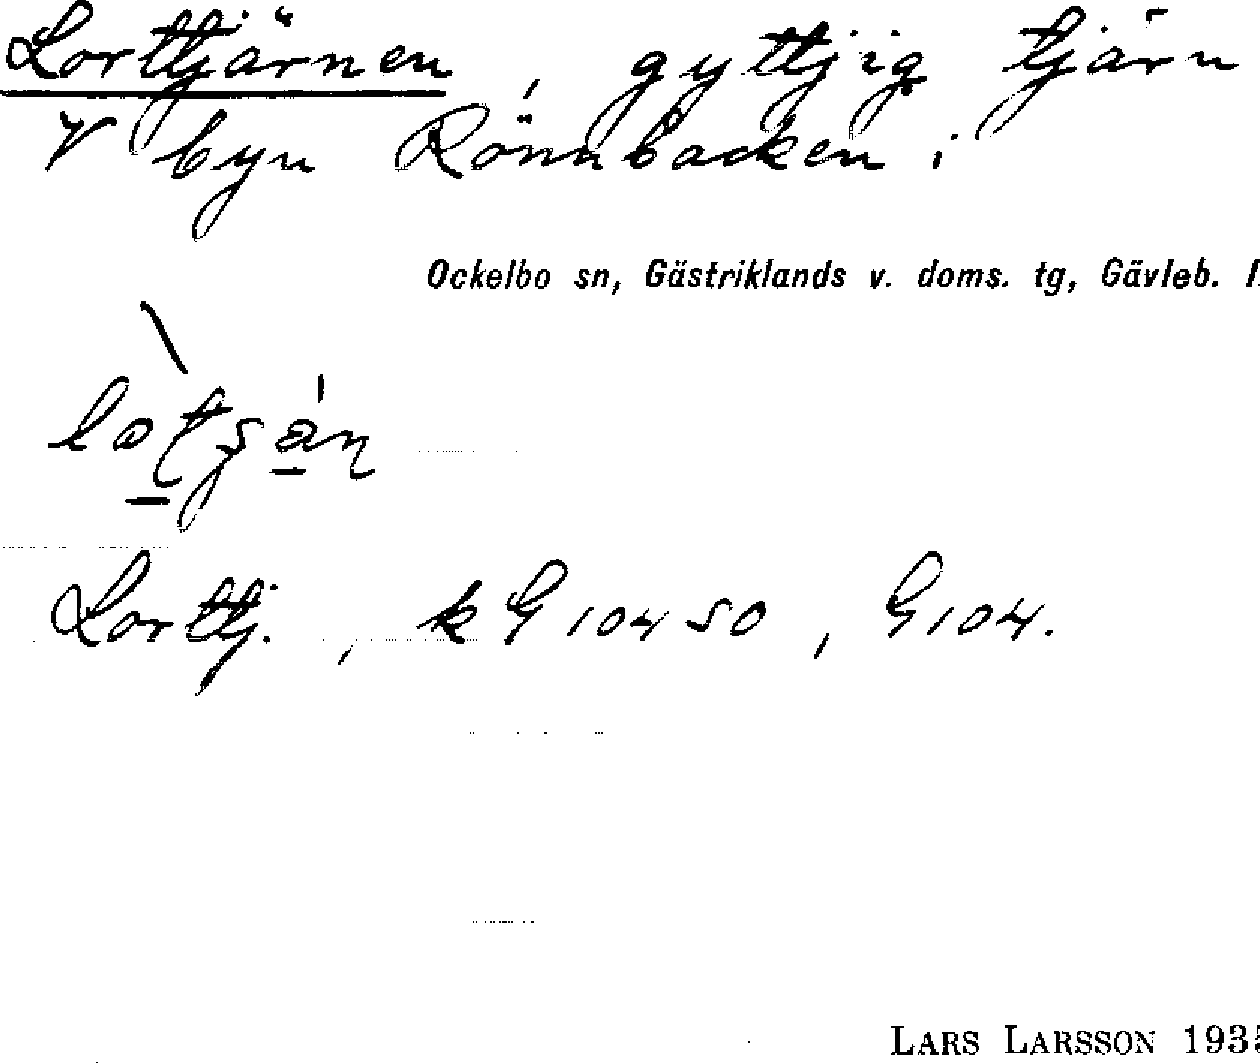 Lorttjärnen, gyttjig tjärn
V byn Rönnbacken i
Ockelbo sn, Gästriklands v. doms. tg, Gävleb. l.
Lorttj., k G 104 50, G 104.
LARS LARSSON 1935